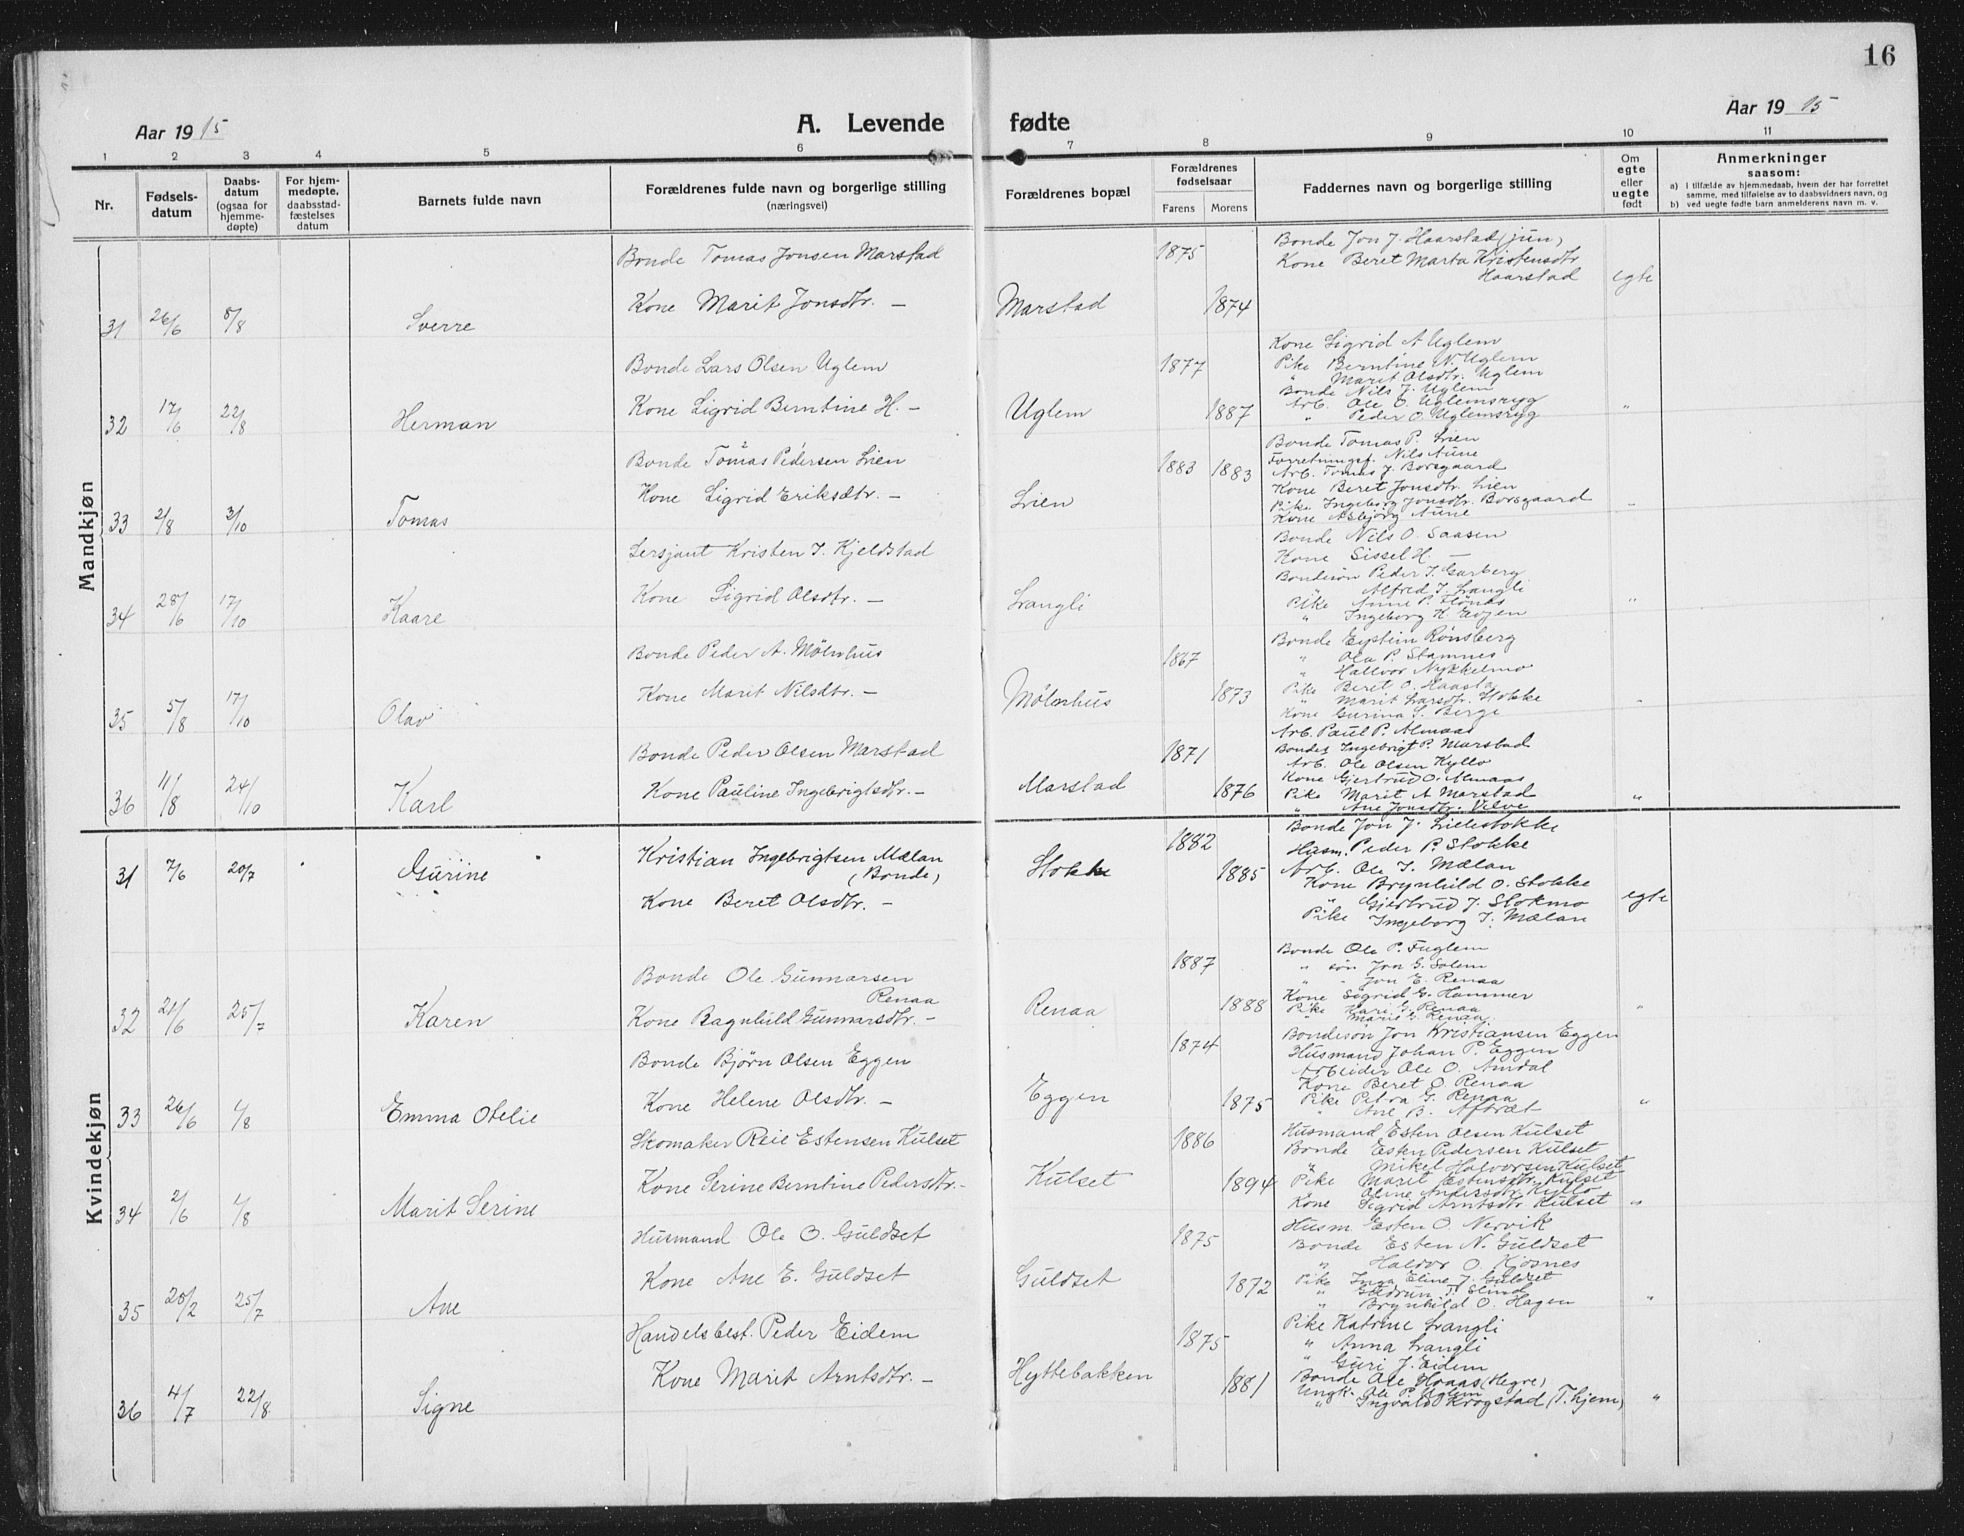 16
Aar 19 15
A. Levende fødte
Aar 19 15
1 2 3 4 5 6 7 8 9 10 11
Nr.
Fødsels-
datum
Daabs-
datum
(ogsaa for
hjemme-
døpte)
For hjem-
medøpte,
daabsstad-
fæstelses
datum
Barnets fulde navn
Forældrenes fulde navn og borgerlige stilling
(næringsvei)
Forældrenes bopæl
Forældrenes
fødselsaar
Farens Morens
Faddernes navn og borgerlige stilling
Om
egte
eller
uegte
født
Anmerkninger
saasom:
a) I tilfælde av hjemmedaab, hvem der har forrettet
samme, med tilføielse av to daabsvidners navn, og
b) ved uegte fødte barn anmelderens navn m. v.
Mandkjøn
31 26/6 8/8 Sverre
Bonde Tomas Jonsen Marstad
Kone Marit Jonsdtr. —
Marstad 1875 1874
Bonde Jon J. Haarstad (jun)
Kone Beret Marta Kristensdtr
Haarstad
egte
32 17/6 22/8 Herman
Bonde Lars Olsen Uglem
Kone Sigrid Berntine H. —
Uglem 1877 1887
Kone Sigrid A Uglem
Pike Berntine N. Uglem
" Marit Olsdtr. Uglem
Bonde Nils J. Uglem
Arb. Ole O. Uglemsryg
" Peder O. Uglemsryg
"
33 2/8 3/10 Tomas
Bonde Tomas Pedersen Lien
Kone Sigrid Eriksdtr. —
Lien 1883 1883
Bonde Tomas P. Lien
Forretningsf. Nils Aune
Arb. Tomas J. Borsgaard
Kone Beret Jonsdtr. Lien
Pike Ingeborg Jonsdtr. Borsgaard
Kone Asbjørg Aune
"
34 28/6 17/10 Kaare
Sersjant Kristen J. Kjeldstad
Kone Sigrid Olsdtr. —
Srangli
Bonde Nils O. Saasen
Kone Sissel H. —
Bondesøn Peder J. Garberg
" Alfred J. Srangli
Pike Anne P. Flønes
" Ingeborg K. Evjen
"
35 5/8 17/10 Olav
Bonde Peder A. Mølnhus
Kone Marit Nilsdtr. —
Mølnhus 1867 1873
Bonde Eystein Rønsberg
" Ola P. Stamnes
" Hallvor Nykkelmo
Pike Beret O. Haasta
" Marit Larsdtr. Stokke
Kone Gurina S. Berge
"
36 11/8 24/10 Karl
Bonde Peder Olsen Marstad
Kone Pauline Ingebrigtsdtr. —
Marstad 1871 1876
Arb. Paul P. Almaas
Bondes. Ingebrigt P. Marstad
Arb. Ole Olsen Kyllo
Kone Gjertrud O. Almaas
Pike Marit A Marstad
" Ane Jonsdtr. Vilve
"
Kvindekjøn
31 7/6 20/7 Gurine
Kristian Ingebrigtsen Mælan
(Bonde)
Kone Beret Olsdtr. —
Stokke 1882 1885
Bonde Jon J. Lillestokke
Husm. Peder P. Stokke
Arb. Ole J. Mælan
Kone Brynhild O. Stokke
" Gjertrud J. Stokmo
Pike Ingeborg J. Mælan
egte
32 21/6 25/7 Karen
Bonde Ole Gunnarsen
Renaa
Kone Ragnhild Gunnarsdtr. —
Renaa 1887 1888
Bonde Ole P. Fuglem
" søn Jon G. Solem
" " Jon E. Renaa
Kone Sigrid G. Hammer
Pike Kari G. Renaa
Marie G. Renaa
"
33 26/6 1/8 Emma Otelie
Bonde Bjørn Olsen Eggen
Kone Helene Olsdtr. —
Eggen 1874 1875
Bondesøn Jon Kristiansen Eggen
Husmand Johan P. Eggen
Arbeider Ole O. Amdal
Kone Beret O. Renaa
Pike Petra G. Renaa
" Ane B. Aftræt
"
34 2/6 1/8 Marit Serine
Skomaker Reie Estensen Kulset
Kone Serine Berntine Pedersdtr. —
Kulset 1886 1894
Husmand Esten Olsen Kulset
Bonde Esten Pedersen Kulset
" Mikel Halvorsen Kulset
Pike Marit Estensdtr. Kulset
Oline Andersdtr. Kyllo
Kone Sigrid Arntsdtr. Kulset
"
35 20/2 25/7 Ane
Husmand Ole O. Guldset
Kone Ane E. Guldset
Guldset 1875 1872
Husm. Esten O. Nervik
Bonde Esten N. Guldset
" Halvor O. Kjøsnes
Pike Inga Eline J. Guldset
" Gudrun T. Slind
" Brynhild O. Hagen
"
36 4/7 22/8 Signe
Handelsbest. Peder Eidem
Kone Marit Arntsdtr. —
Hyttebakken 1875 1881
Pike Katrine Srangli
" Anna Srangli
" Guri J. Eidem
Bonde Ole Hraas (Hegre)
Ungk. Ole P. Uglem
" Ingvald Krogstad (T.hjem)
"